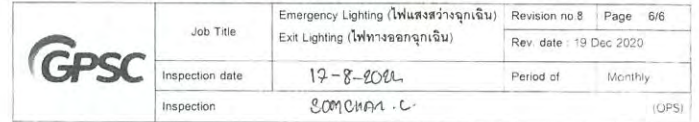 GPSC
Job Title
Emergency Lighting (ไฟแสงสว่างฉุกเฉิน)
Exit Lighting (ไฟทางออกฉุกเฉิน)
Revision no.8 Page 6/6
Rev. date : 19 Dec 2020
Inspection date 17-8-2022 Period of Monthly
Inspection SOMCHAI .C. (OPS)